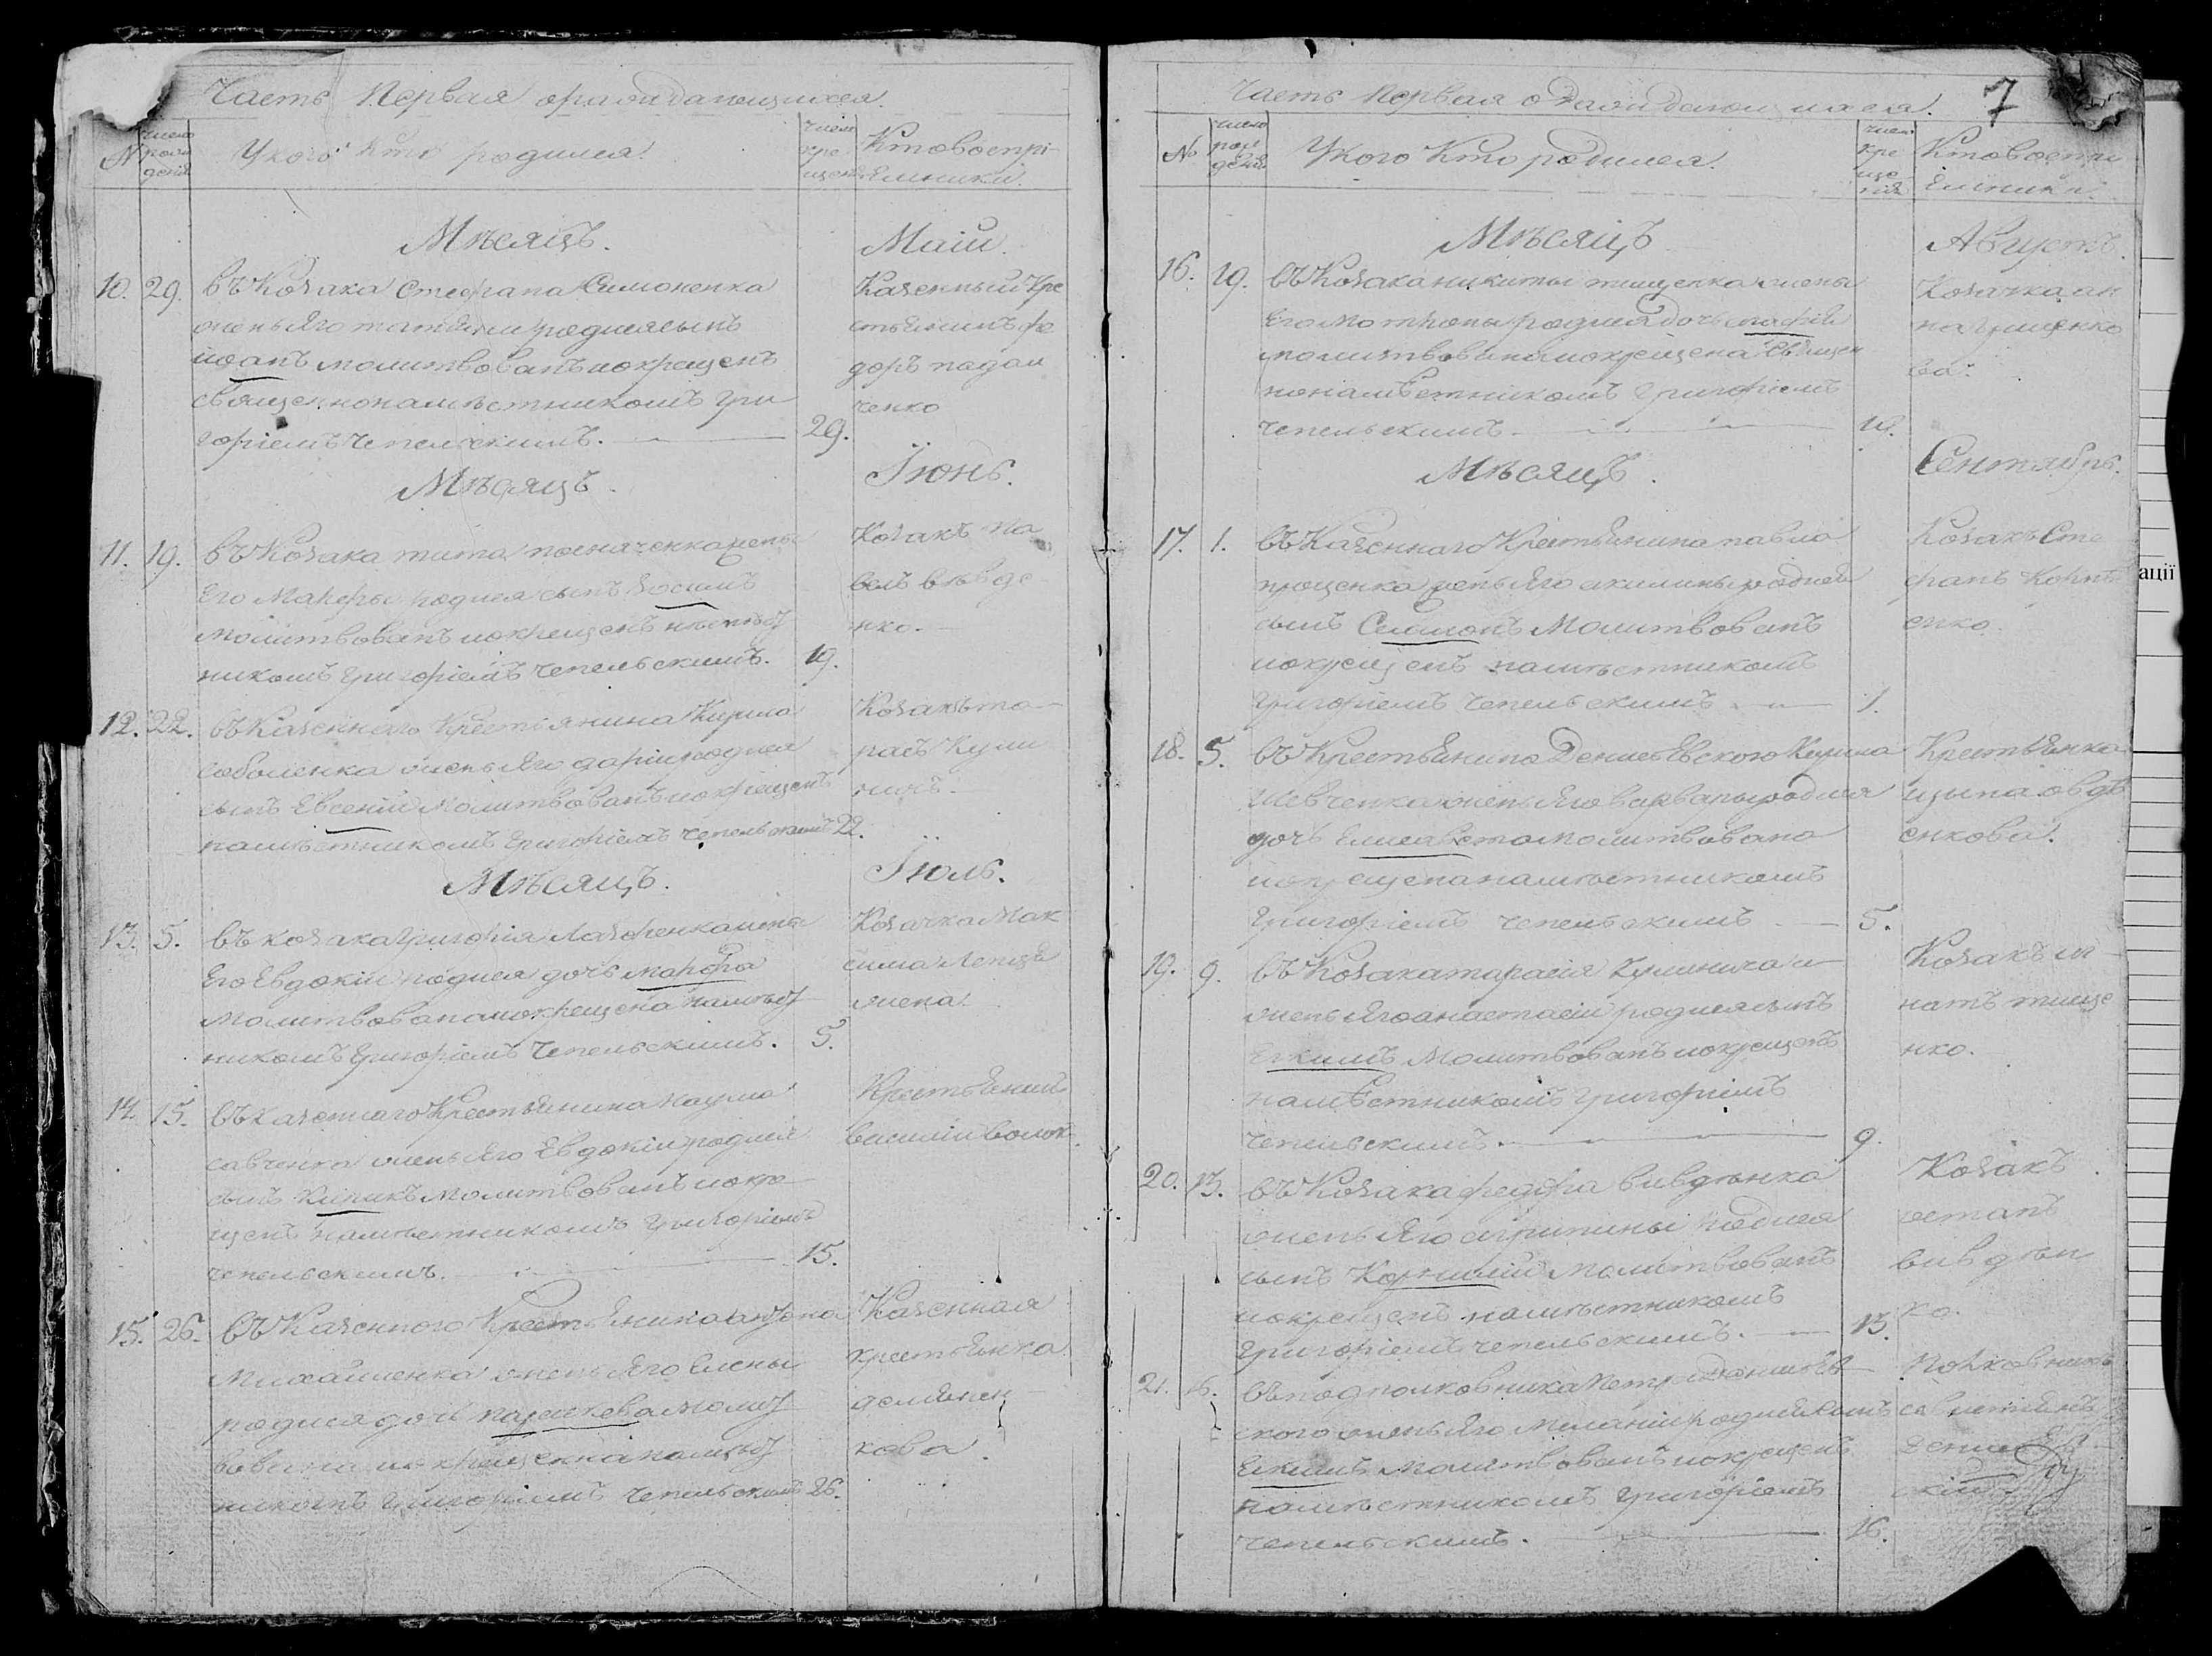 Часть Первая ораждающихся.
№
число рождения
У кого кто родился.
число крещения
Кто восприемники.
Мѣсяцъ. Маій.
10. 29. въ Козака Стефана Симоненка
жены Яго татяны родился сынъ
иоанъ молитвованъ и окрещенъ
священнонамѣстникомъ Гри
горіемъ Чепельскимъ. 29.
Казенный Кре
стьянинъ фе
доръ падал
ченко
Мѣсяцъ. Іюнь.
11. 19. въ Козака тита жены
Его Марфы родился сынъ Зосимъ
Молитвованъ и окрещенъ намѣст
никомъ Григоріемъ Чепельскимъ. 19.
Козакъ Па
велъ вивде
нко.
12. 22. въ Казеннаго Крестьянина Кирила
соболенка жены Яго даріи родился
сынъ Евсеній Молитвованъ и окрещенъ
намѣстникомъ Григоріемъ Чепельскимъ 22.
Козакъ та
расъ Кули
Мѣсяцъ. Іюль.
13. 5. въ козака Григорія жены
Его Евдокіи родился дочь Марфа
Молитвована и окрещена намѣст
никомъ Григоріемъ Чепельскимъ. 5.
Козачка Мак
сима
жена.
14. 15. въ казеннаго Крестьянина Наума
савченка жены Яго Евдокіи родился
сынъ Кирикъ Молитвованъ и окре
щенъ намѣстникомъ Григоріемъ
Чепельскимъ. 15.
Крестьянин
василій волок
15. 26. въ Казенного Крестьянина антона
Михайленка жены Яго Елены
родился дочь параскева Молит
вована и окрещенна намѣст
никомъ Григоріемъ Чепельскимъ 26.
Казенная
крестьянка
демянен
кова.
7
Часть Первая о раждающихся.
№
число рождения
У кого Кто родился.
число крещения
Кто восприемники.
Мѣсяцъ Августъ.
16. 19. въ Козака никиты тищенка жены
Его Мотроны родился дочь
молитвована и окрещена священ
нонамѣстникомъ Григоріемъ
Чепельскимъ. 19.
Козачка ан
на грищенко
ва.
Мѣсяцъ. Сентябрь.
17. 1. въ Казеннаго Крестьянина павла
проценка жены Яго акилины родился
сынъ Симеонъ Молитвованъ
и окрещенъ намѣстникомъ
Григоріемъ Чепельскимъ. 1.
Козакъ Сте
фанъ Корнѣ
енко.
18. 5. въ Крестьянина Денисьевского Кирила
Шевченка жены Яго варвары родился
дочь Елисавета Молитвована
и окрещена намѣстникомъ
Григоріемъ Чепельскимъ 5.
Крестьянка
ирина овдѣ
енкова.
19. 9. въ Козака тарасія Кулинича
жены Яго анастасіи родился сынъ
Екимъ Молитвованъ и окрещенъ
намѣстникомъ Григоріемъ
Чепельскимъ. 9.
Козакъ иг
натъ тище
нко.
20. 13. въ Козака федора вивдѣнка
жены Яго агрипины родился
сынъ Корнилий Молитвованъ
и окрещенъ намѣстникомъ
Григоріемъ Чепельскимъ. 13.
Козакъ
остапъ
вивдѣн
ко.
21. 16. въ подполковника Петра Денисьев
ского жены Яго Меланіи родился сынъ
Екимъ Молитвованъ и окрещенъ
намѣстникомъ Григоріемъ
Чепельскимъ. 16.
Полковникъ
севастіянъ
Денисьев
скій
ації